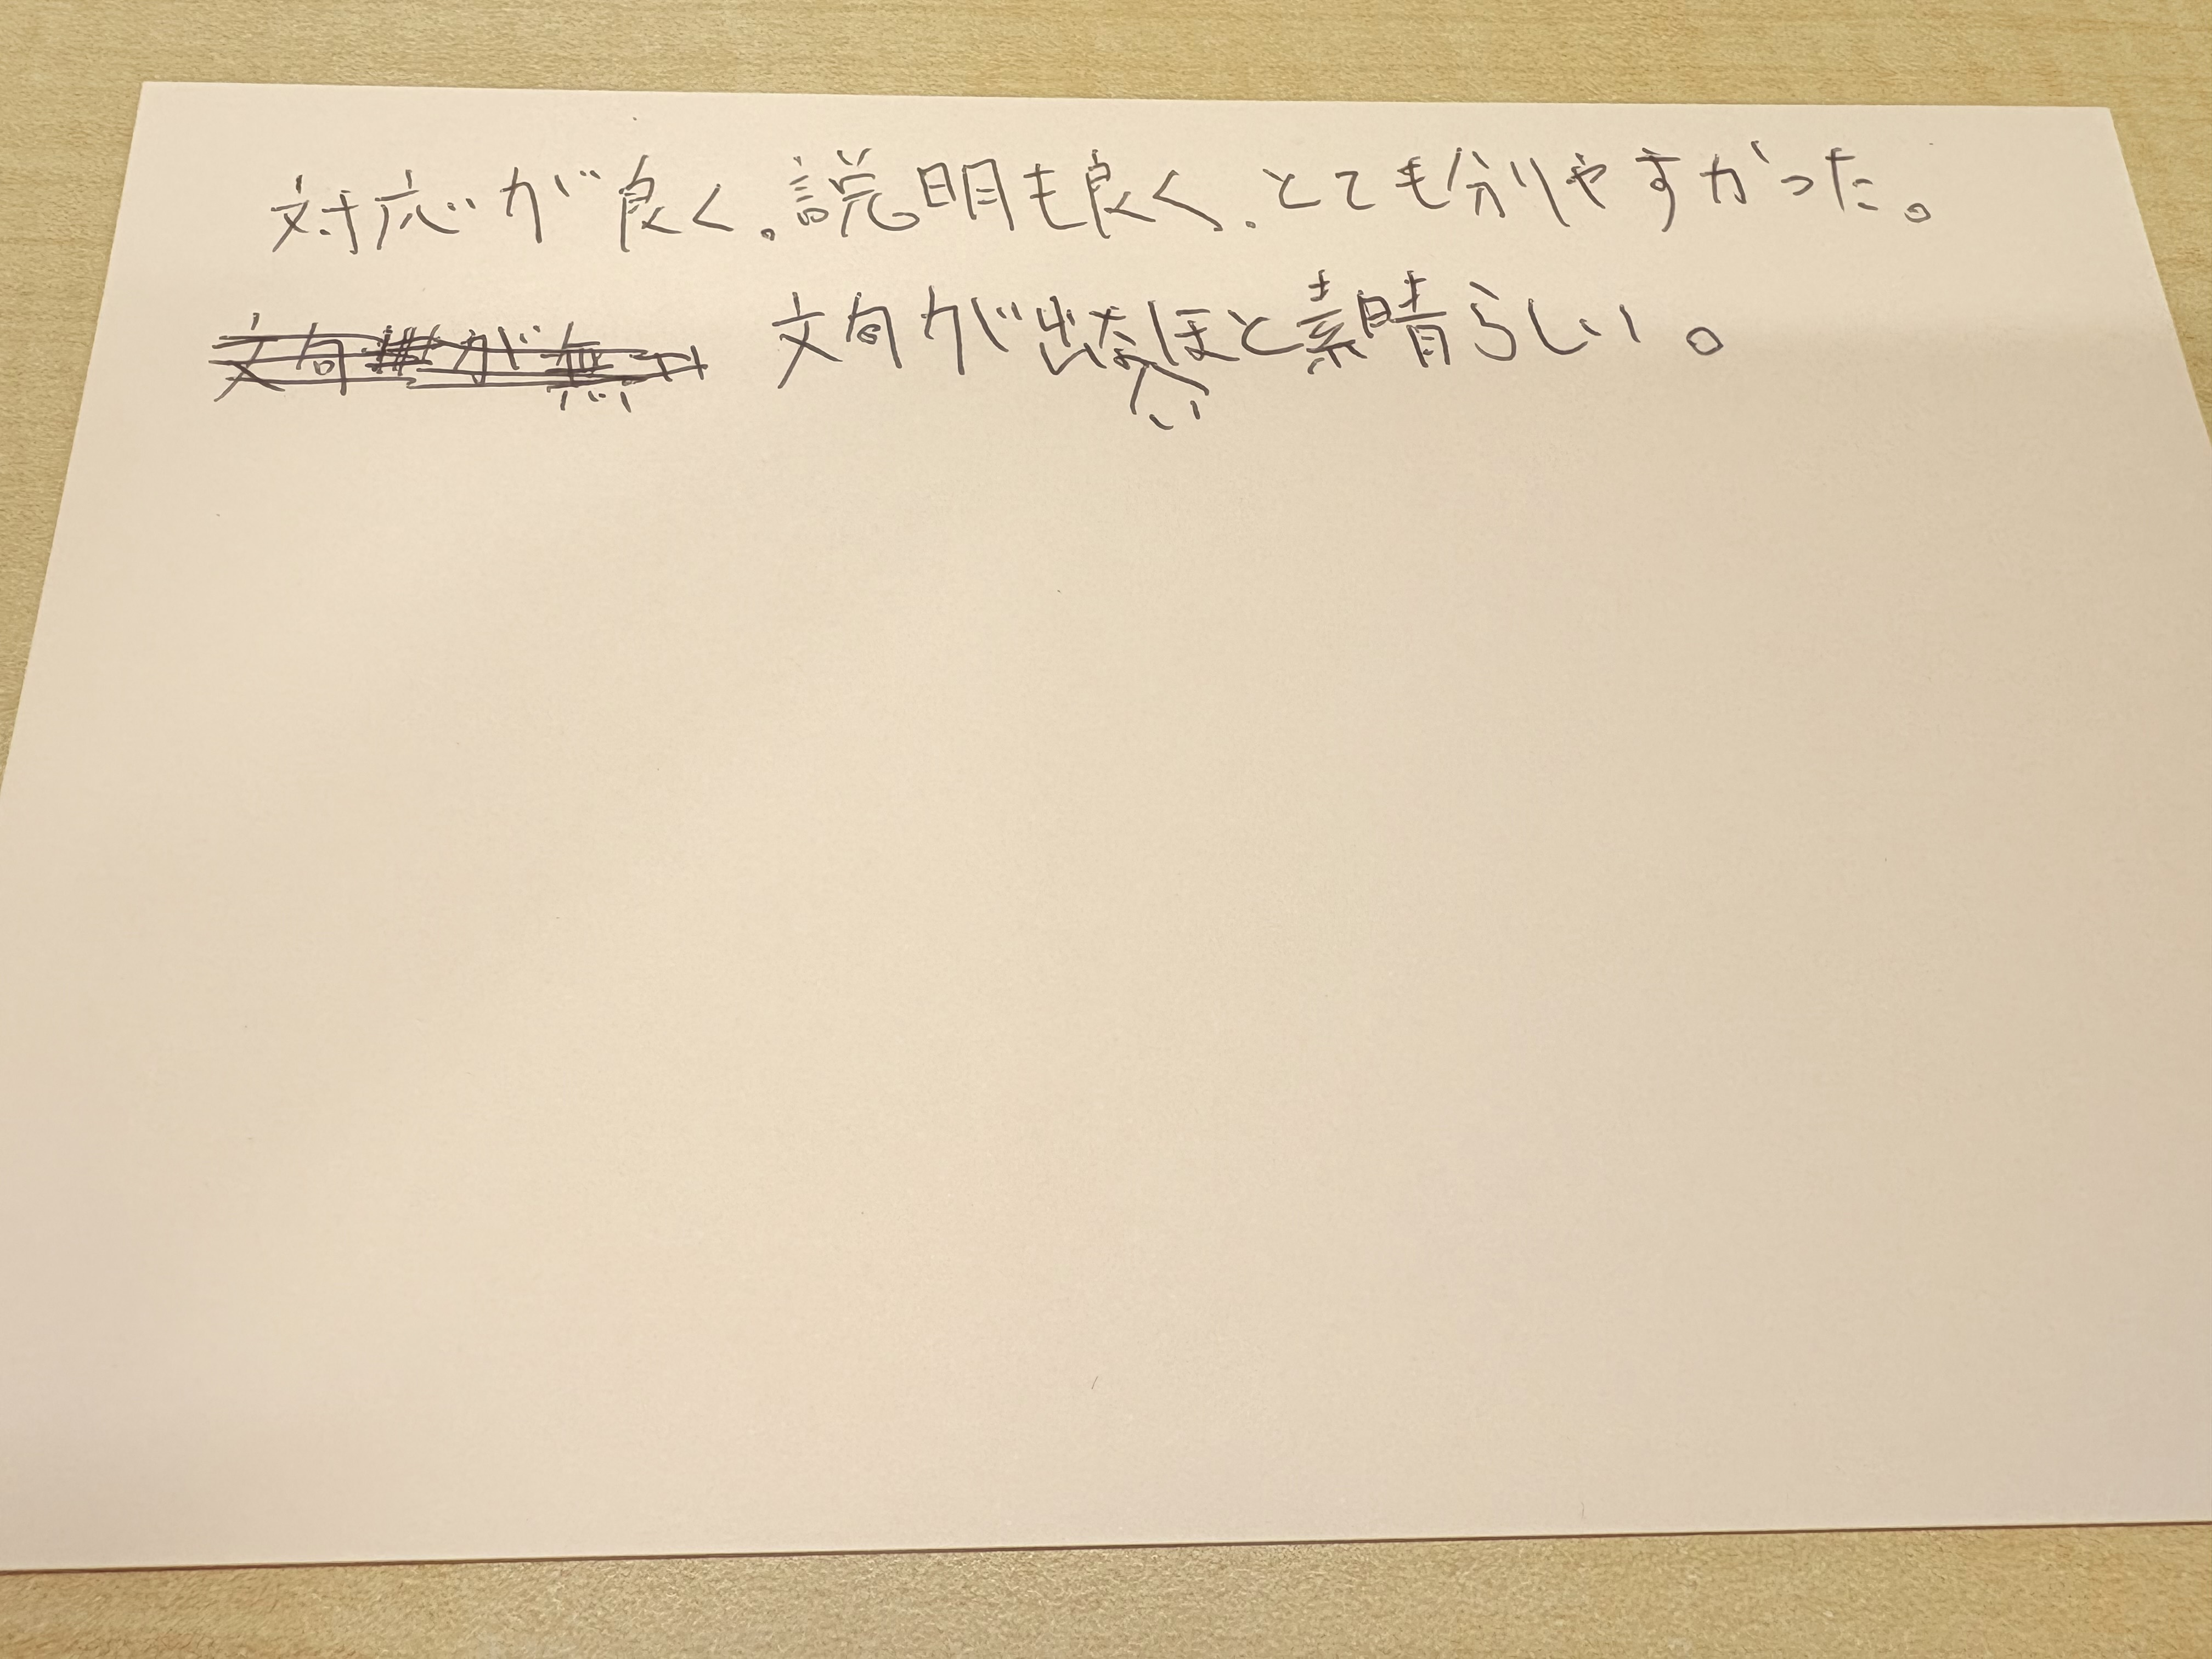 対応が良く。説明も良く、とても分りやすかった。
文句が出ないほど素晴らしい。